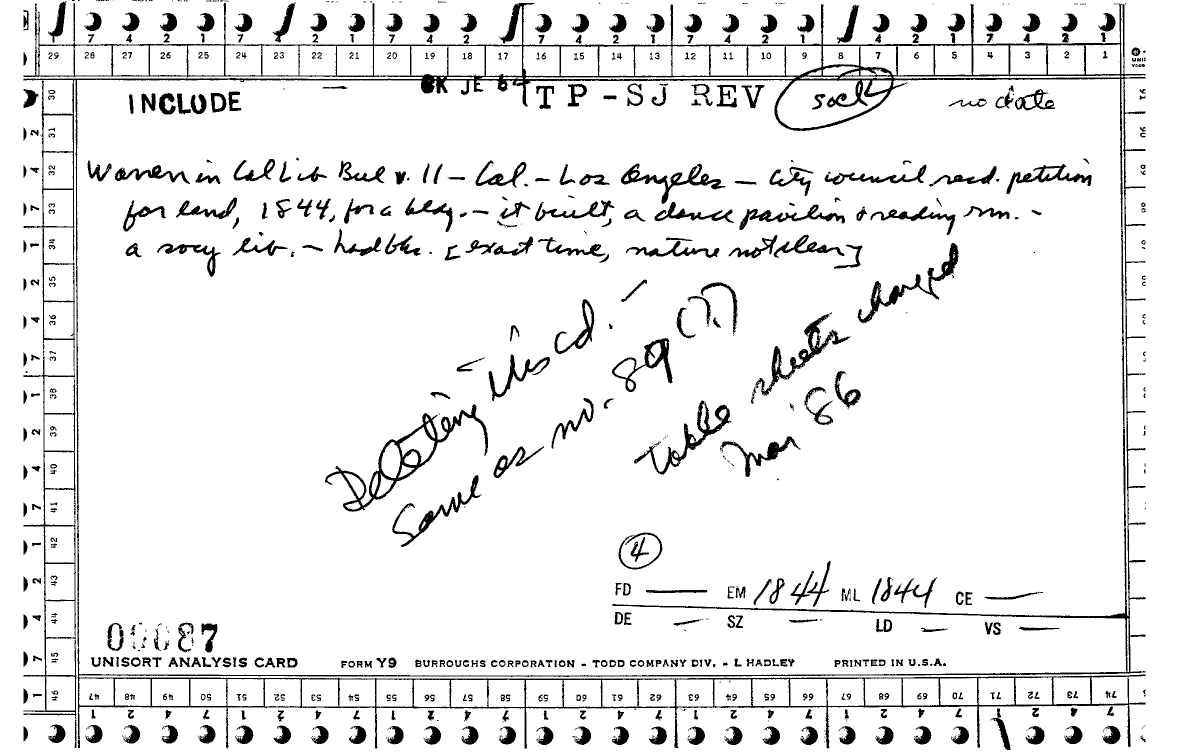 7 4 2 1 7 4 2 1 7 4 2 1 7 4 2 1 7 4 2 1 7 4 2 1 7 4 2 1
29 28 27 26 25 24 23 22 21 20 19 18 17 16 15 14 13 12 11 10 9 8 7 6 5 4 3 2 1
INCLUDE — CK JE 64 TP-SJ REV socl no date
Women in Cal Lib Bul v. 11 – Cal. – Los Angeles – City council recd. petition
for land, 1844, for a bldg. – it built, a dance pavilion & reading rm. –
a socy lib. – had bks. [exact time, nature not clear]
Deleting this cd. –
Same as no. 89 (?)
Table sheets changed
Mar '86
4
FD — EM 1844 ML 1844 CE —
DE — SZ — LD — VS —
00087
UNISORT ANALYSIS CARD FORM Y9 BURROUGHS CORPORATION - TODD COMPANY DIV. - L HADLEY PRINTED IN U.S.A.
30
31
32
33
34
35
36
37
38
39
40
41
42
43
44
45
46
47 48 49 50 51 52 53 54 55 56 57 58 59 60 61 62 63 64 65 66 67 68 69 70 71 72 73 74
1 2 4 7 1 2 4 7 1 2 4 7 1 2 4 7 1 2 4 7 1 2 4 7 1 2 4 7